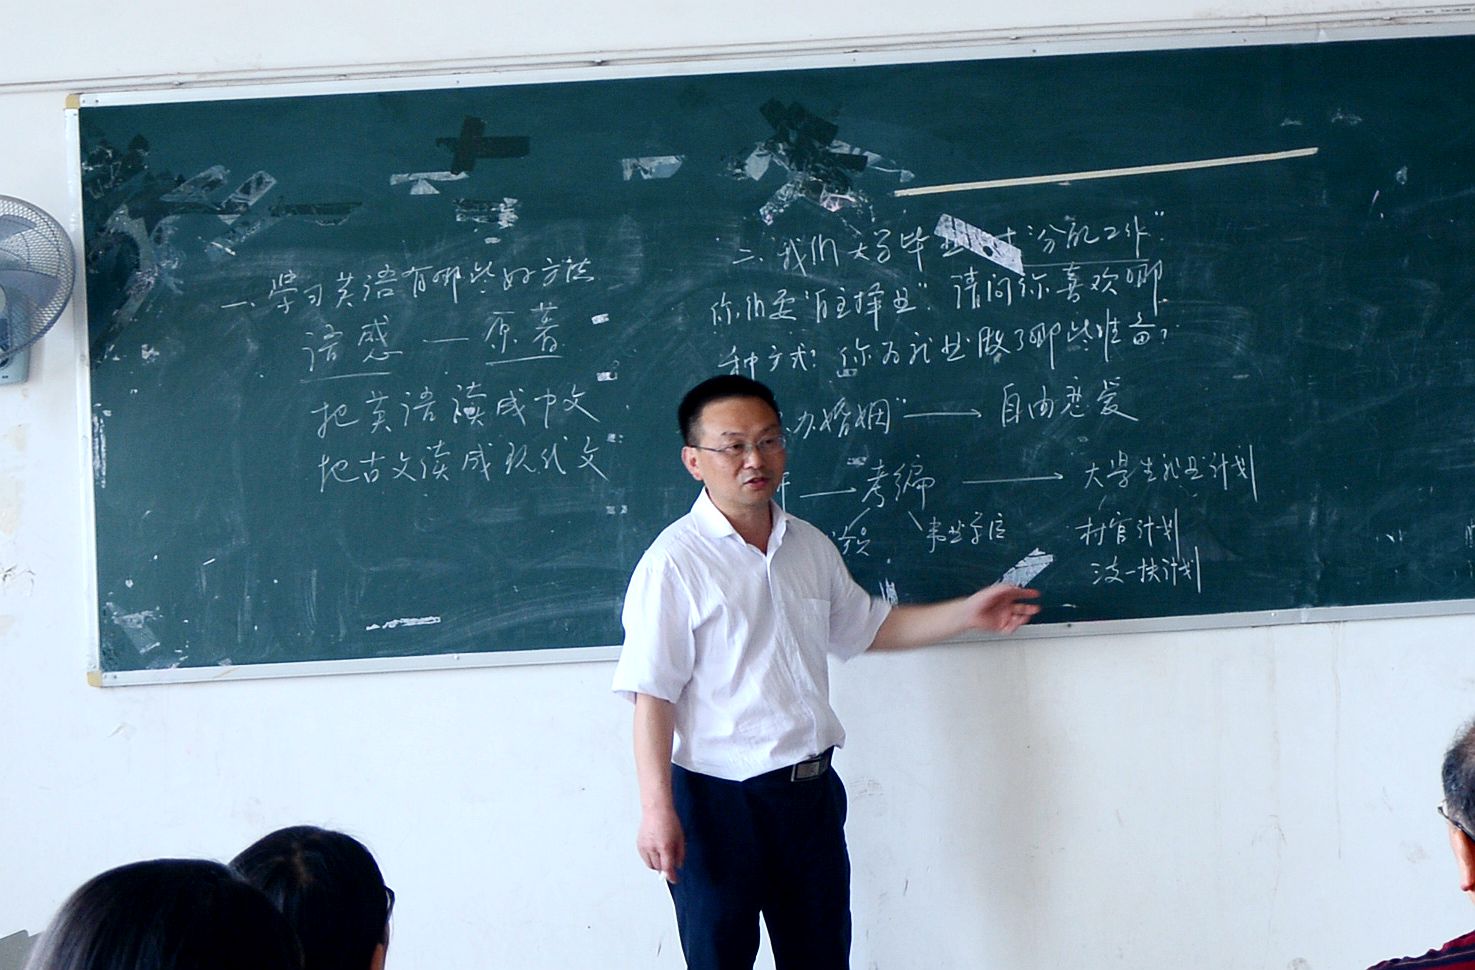 一、学习英语有哪些好方法
语感 — 原著
把英语读成中文
把古文读成现代文
二、我们大学毕业 "分配工作"
你们要"自主择业"请问你喜欢哪
种方式？你为就业做了哪些准备？
办婚姻" → 自由恋爱
→ 考编 → 大学生就业计划
村官计划
三支一扶计划